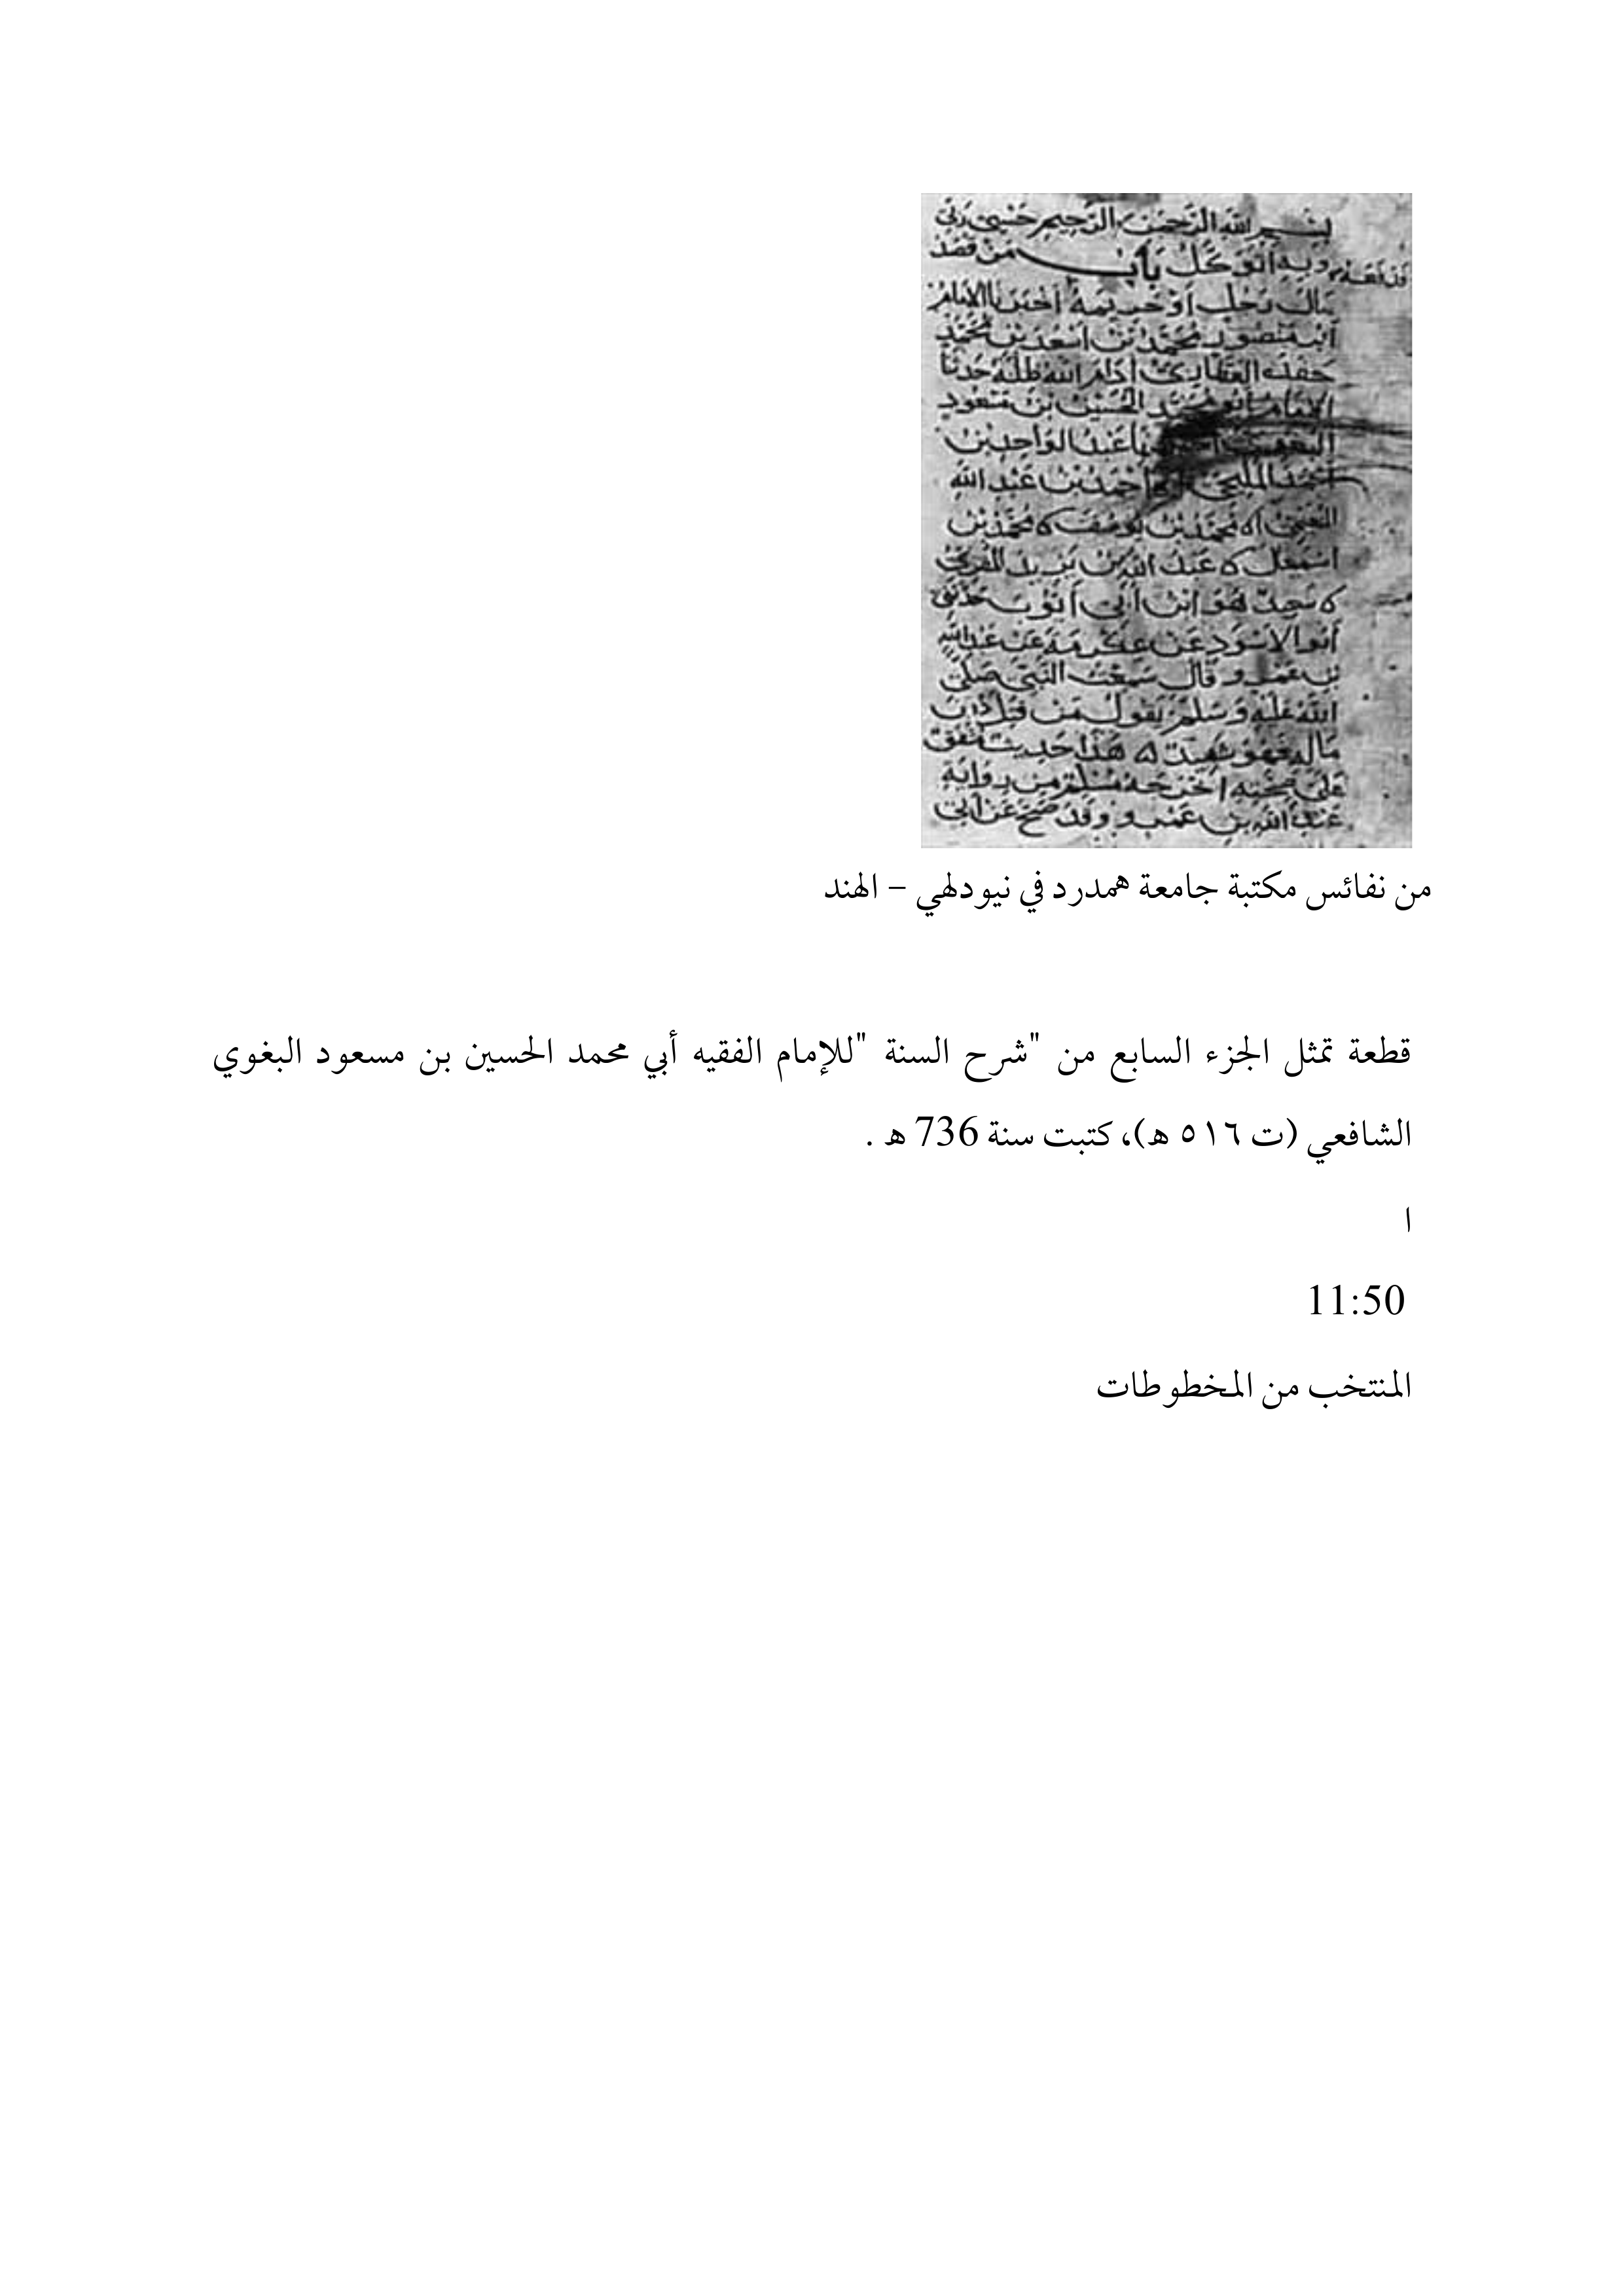 بسم الله الرحمن الرحيم حسبي ربي
وبه اتوكل باب من قصد
مال رجل او حريمه اخبرنا الامام
ابو منصور محمد بن اسعد بن محمد
حفدة العطاري ادام الله ظله حدثنا
الامام ابو محمد الحسين بن مسعود
انا عبد الواحد بن
احمد المليحي انا احمد بن عبد الله
النعيمي انا محمد بن يوسف نا محمد بن
اسمعيل نا عبد الله بن يزيد المقري
نا سعيد هو ابن ابي ايوب حدثني
ابو الاسود عن عكرمة عن عبد الله
بن عمرو قال سمعت النبي صلى
الله عليه وسلم يقول من قتل دون
ماله فهو شهيد هذا حديث متفق
على صحته اخرجه مسلم من رواية
عبد الله بن عمرو وقد صح عن ابي
من نفائس مكتبة جامعة همدرد في نيودلهي – الهند
قطعة تمثل الجزء السابع من "شرح السنة "للإمام الفقيه أبي محمد الحسين بن مسعود البغوي
الشافعي (ت ٥١٦ ه)، كتبت سنة 736 ه .
ا
11:50
المنتخب من المخطوطات